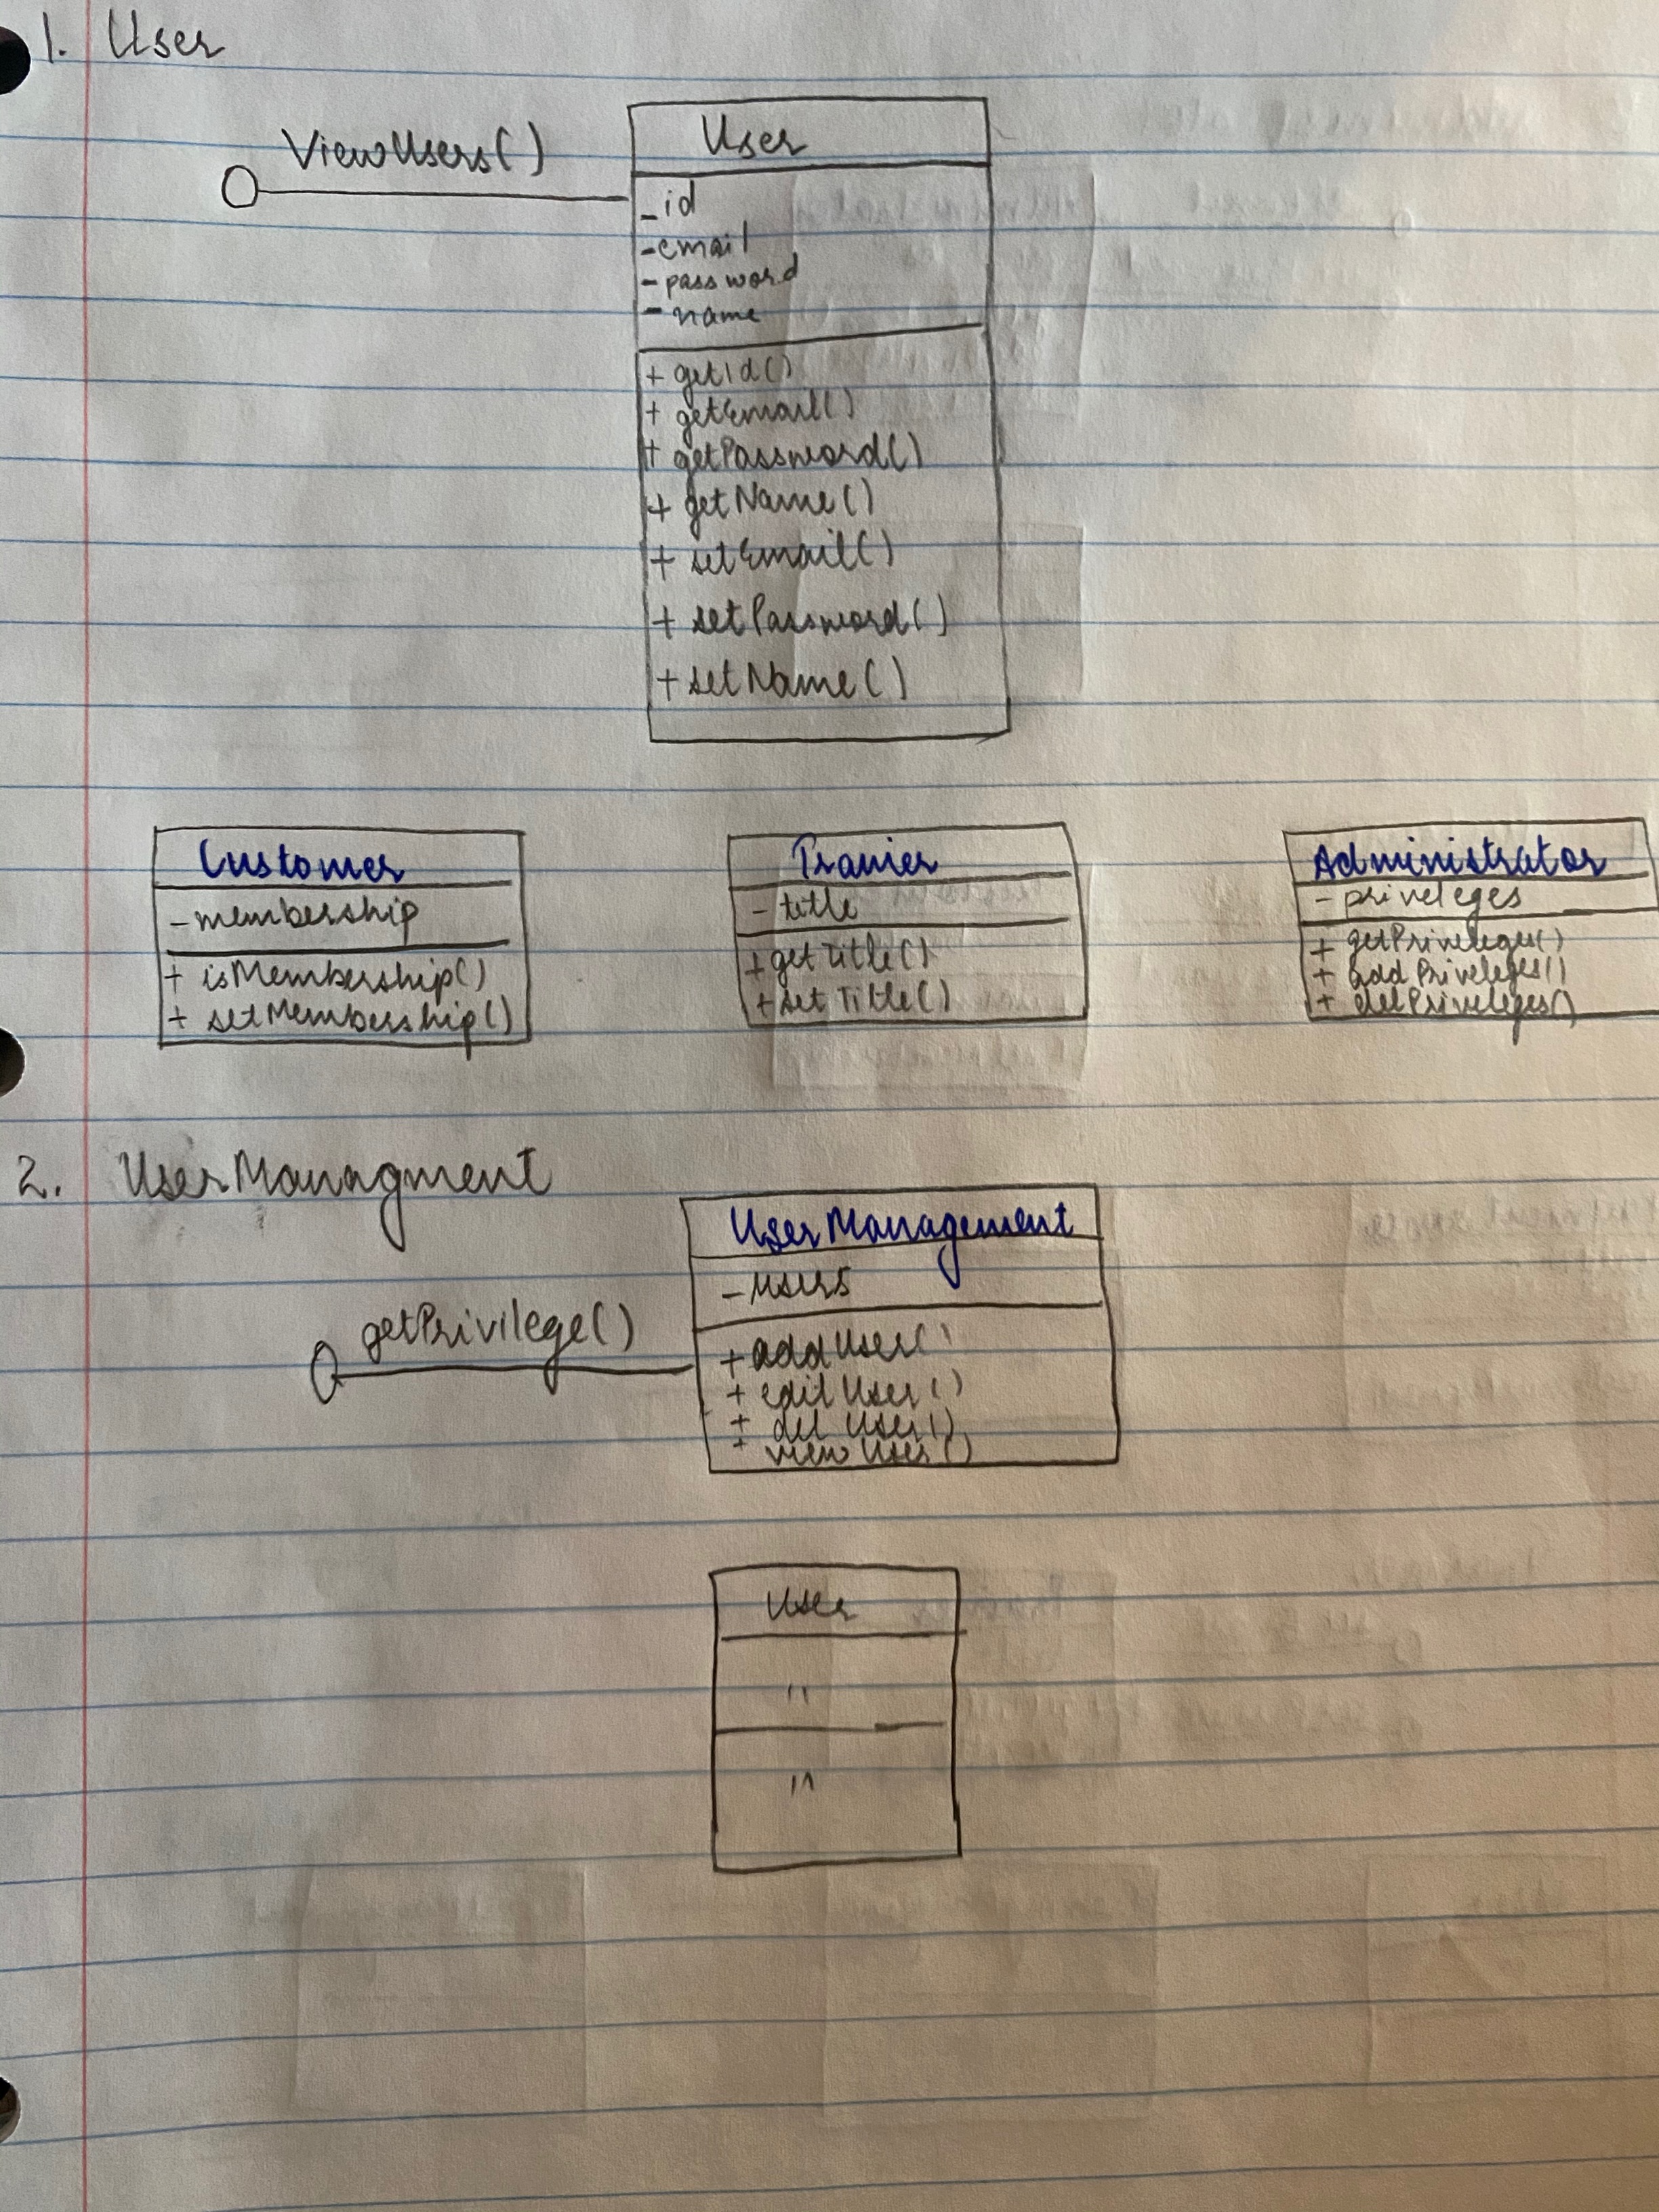 1. User
ViewUsers()
User
- id
- email
- password
- name
+ getId()
+ getEmail()
+ getPassword()
+ getName()
+ setEmail()
+ setPassword()
+ setName()
Customer
- membership
+ isMembership()
+ setMembership()
Tranier
- title
+ getTitle()
+ setTitle()
Administrator
- priveleges
+ getPriveleges()
+ addPriveleges()
+ delPriveleges()
2. UserManagment
UserManagement
- users
getPrivilege()
+ addUser()
+ editUser()
+ delUser()
+ viewUser()
User
"
"